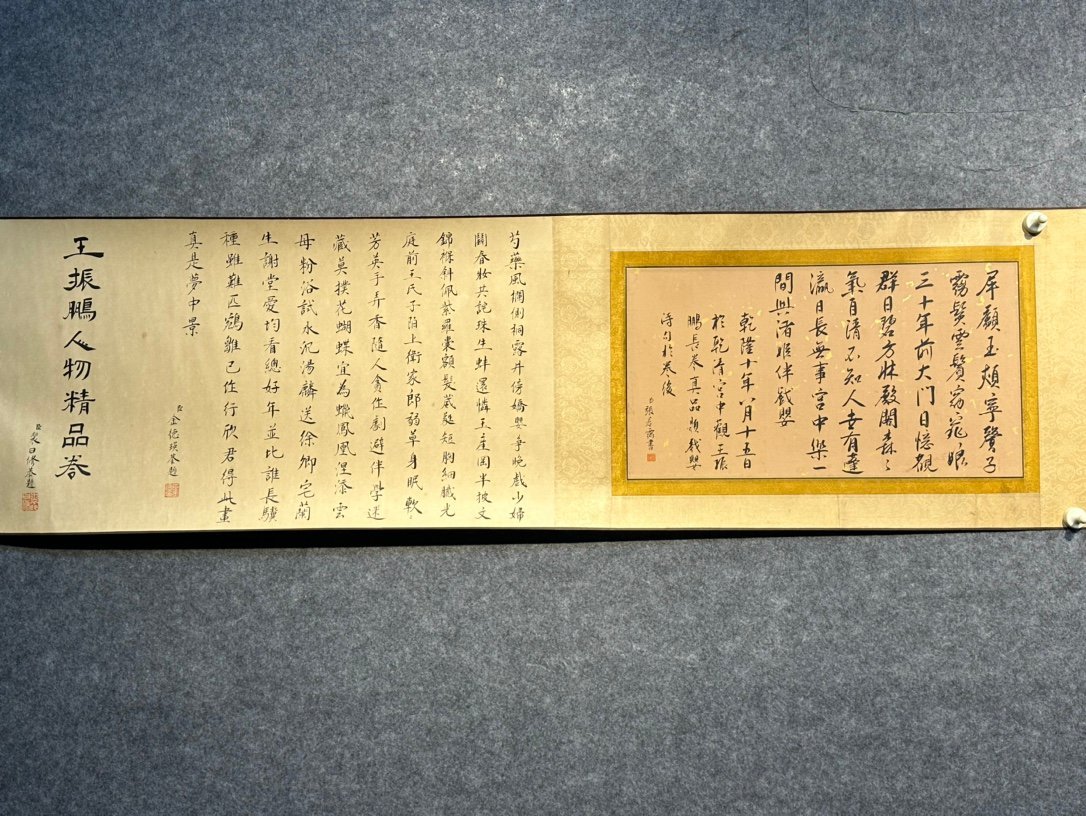 犀顱玉頰寧馨子
霧鬢雲鬟窈窕娘
三十年前大門日憶觀
群日碧方牀殿閣森々
氣自清不知人世有蓬
瀛日長無事宮中樂一
間與諸姬伴戲嬰
乾隆十年八月十五日
於乾清宮中觀王振
鵬長卷真品題戲嬰
詩句於卷後
臣張若靄書
芍藥風欄側桐露井傍嬌嬰爭晚戲少婦
鬪春妝共説珠生蚌還憐玉產岡半披文
錦褓斜佩紫羅囊額髮葳蕤短胸細膩光
庭前王氏子陌上衛家郎弱草身眠軟
芳英手弄香隨人貪作劇避伴學迷
藏莫撲花蝴蝶宜為蠟鳳凰涅添雲
母粉浴試水沉湯麟送徐卿宅蘭
生謝堂愛均看總好年並比誰長驥
種雖難匹鵷雛已作行欣君得此畫
真是夢中景
臣金德瑛恭題
王振鵬人物精品卷
臣裘曰修恭題